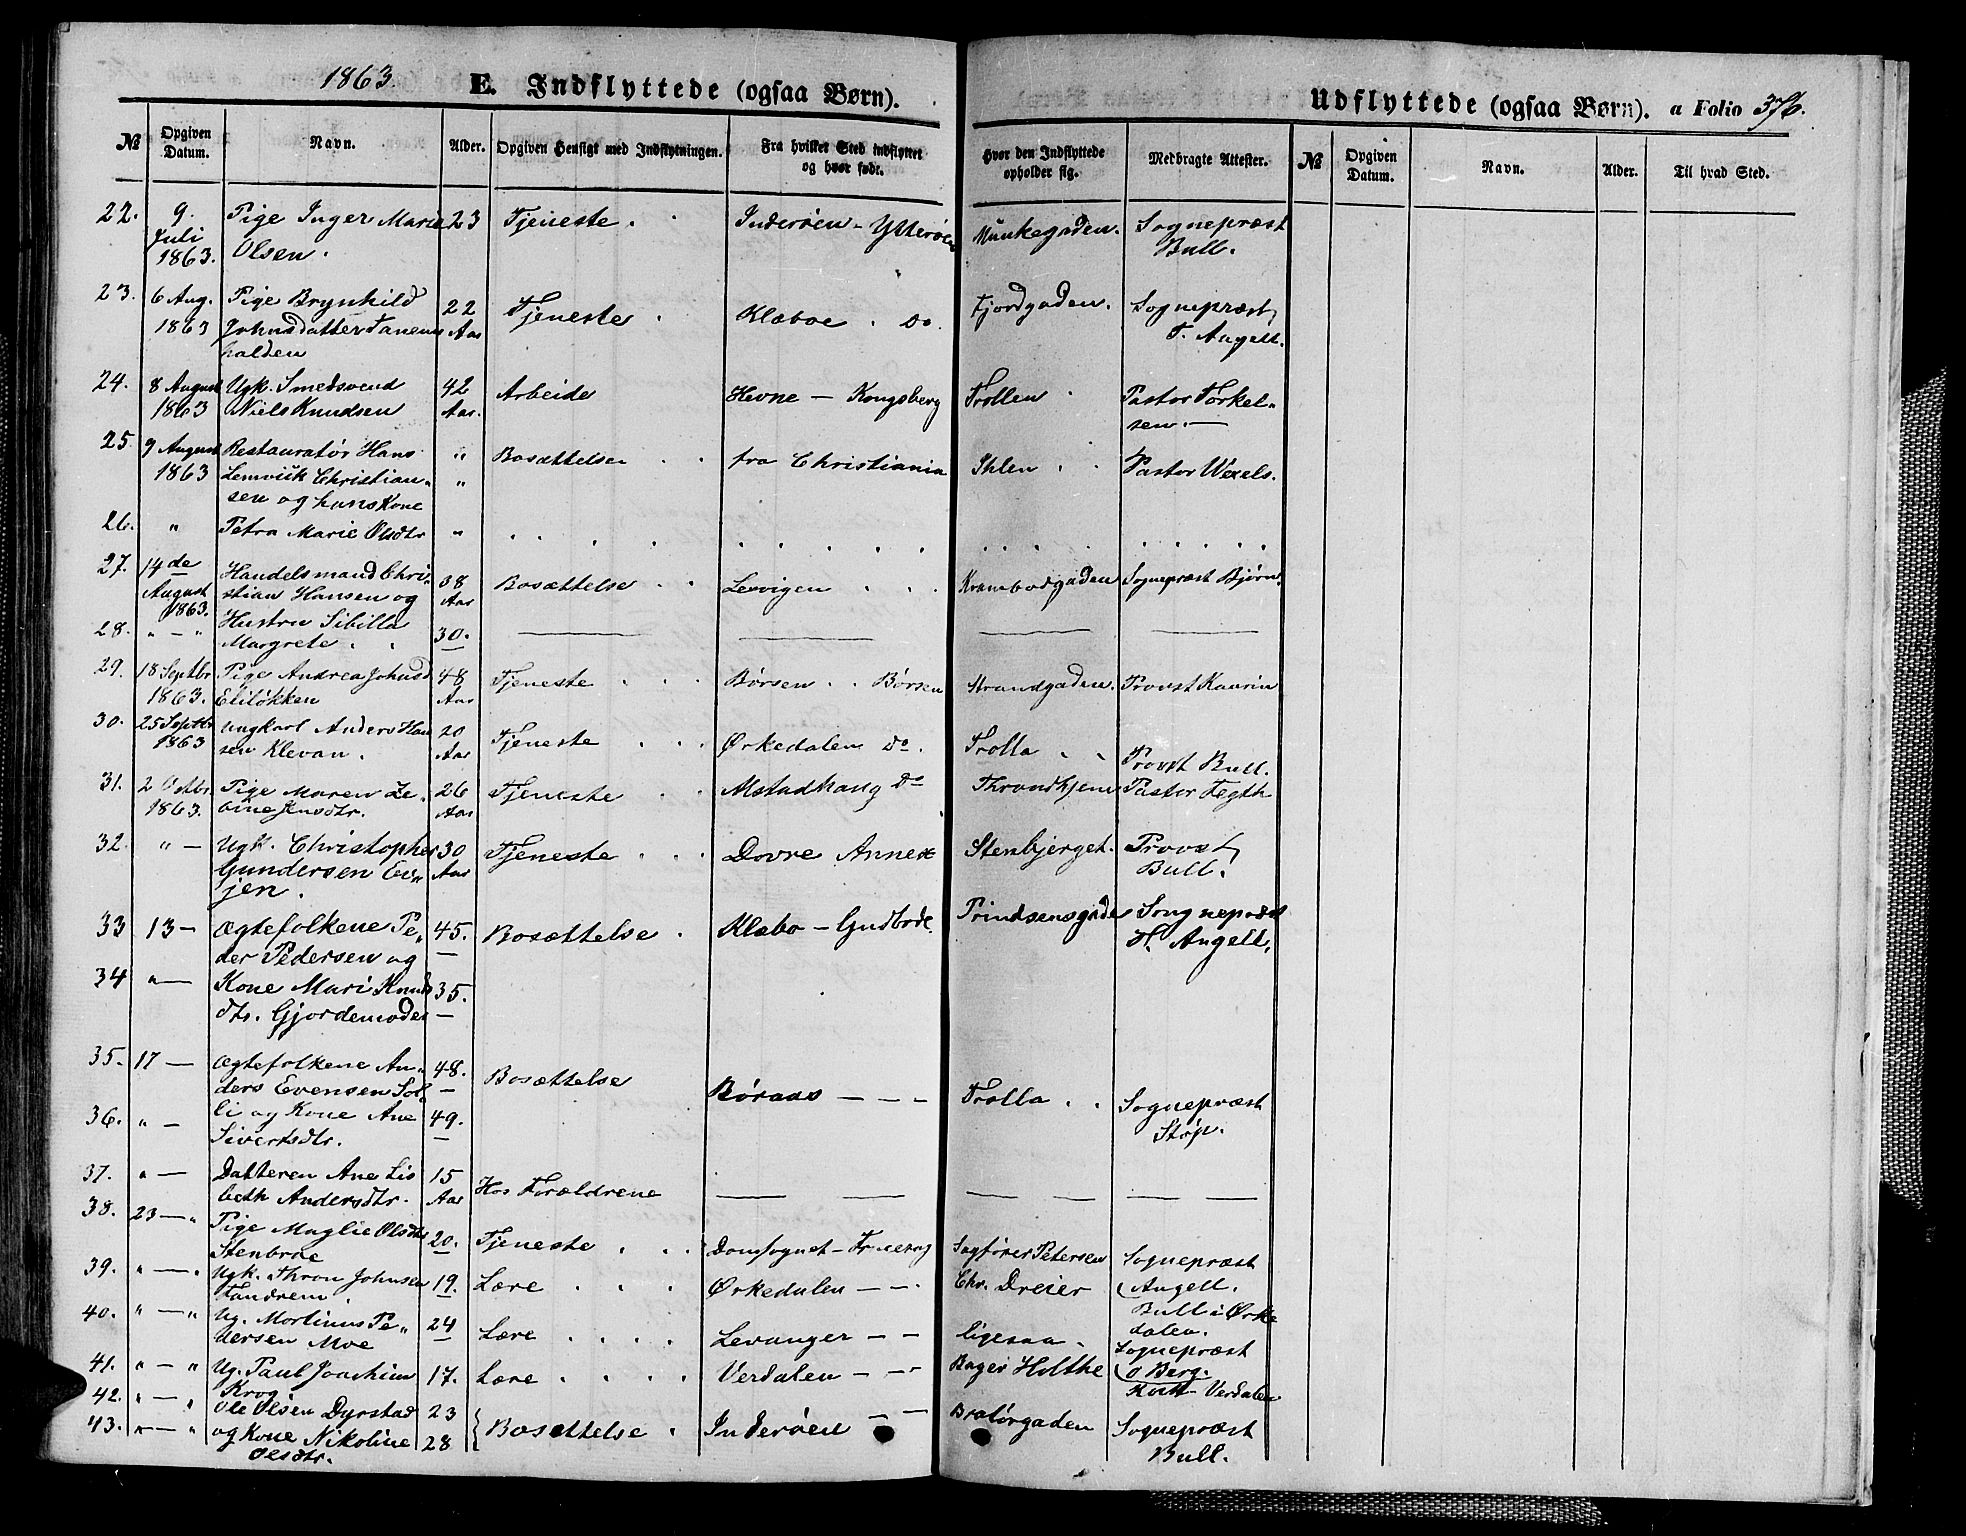 1863.
E. Indflyttede (ogsaa Børn).
Udflyttede (ogsaa Børn). a Folio 376.
№ Opgiven Datum. Navn. Alder. Opgiven Hensigt med Indflytningen. Fra hvilket Sted indflyttet og hvor født. Hvor den Indflyttede opholder sig. Medbragte Attester. № Opgiven Datum. Navn. Alder. Til hvad Sted.
22. 9. Pige Inger Marie 23 Tjeneste Inderøen - Ytterøen Munkegaden. Sognepræst
Juli Olsen. Bull.
1863.
23. 6 Aug. Pige Brynhild 22 Tjeneste Klæboe do. Fjordgaden. Sognepræst
1863 Johnsdatter Tanem Aar T. Angell.
halden
24. 8 August Ugk. Smedsvend 42 Arbeide Hevne — Kongsberg Trollen Pastor Torkel-
1863 Niels Knudsen Aar. sen.
25. 9 August Restauratør Hans " Bosættelse fra Christiania Ihlen Pastor Wexels.
1863 Lemviik Christian- "
sen og hans Kone
26. " Petra Marie Olsdtr "
27. 14de Handelsmand Chri- 38 Bosættelse Levigen Krambodgaden Sognepræst Bjørn.
August stian Hansen og Aar
1863. Hustru Sibilla
28. " — " Margrete 30.
29. 18 Septbr Pige Andrea Johnsd 48 Tjeneste Børsen Børsen Strandgaden. Provst Kaurin
1863. Eliløkken Aar
30. 25 Septbr Ungkarl Anders Han 20 Tjeneste Ørkedalen do. Trolla Provst Bull.
1863 sen Klevan. Aar
31. 2 Octbr. Pige Maren Le- 26 Tjeneste Alstadhaug do Throndhjem Pastor Tegth
1863. vine Jensdtr. Aar
32. " — Ugk. Christopher 30 Tjeneste Dovre Annex Stenbjerget. Provst
Gundersen Ev- Aar Bull.
jen.
33 13 — Ægtefolkene Pe- 45. Bosættelse Klæbo — Prindsensgade Songnepræst
der Pedersen og H. Angell.
34 " — Kone Mari Knuds 35.
dtr. Gjordemoder
35. 17 — Ægtefolkene An- 48. Bosættelse Børaas Trolla Sognepræst
ders Evensen Sol- Støp.
36. " — li og Kone Ane 49.
Sivertsdtr.
37. " — Datteren Ane Lis 15 Hos Forældrene
beth Andersdtr. Aar
38. 23 — " Pige Maglie Olsdtr 20. Tjeneste Domsognet - Sagfører Petersen Sognepræst
Stenbroe Angell.
39. " — " Ugk. Thron Johnsen 19. Lære Ørkedalen Chr. Dreier Bull i Ørke
Tandrem dalen.
40. " — " Ug. Mortinus Pe- 24 Lære Levanger ligesaa Sognepræst
dersen Moe o Berg.
41. " — " Ug. Paul Joachim 17. Lære Verdalen Bager Holthe Verdalen
Krog
42. " — " Ole Olsen Dyrstad 23 Bosættelse Inderøen Bratørgaden Sognepræst
43. " — " og Kone Nikoline 28 Bull.
Olsdtr.